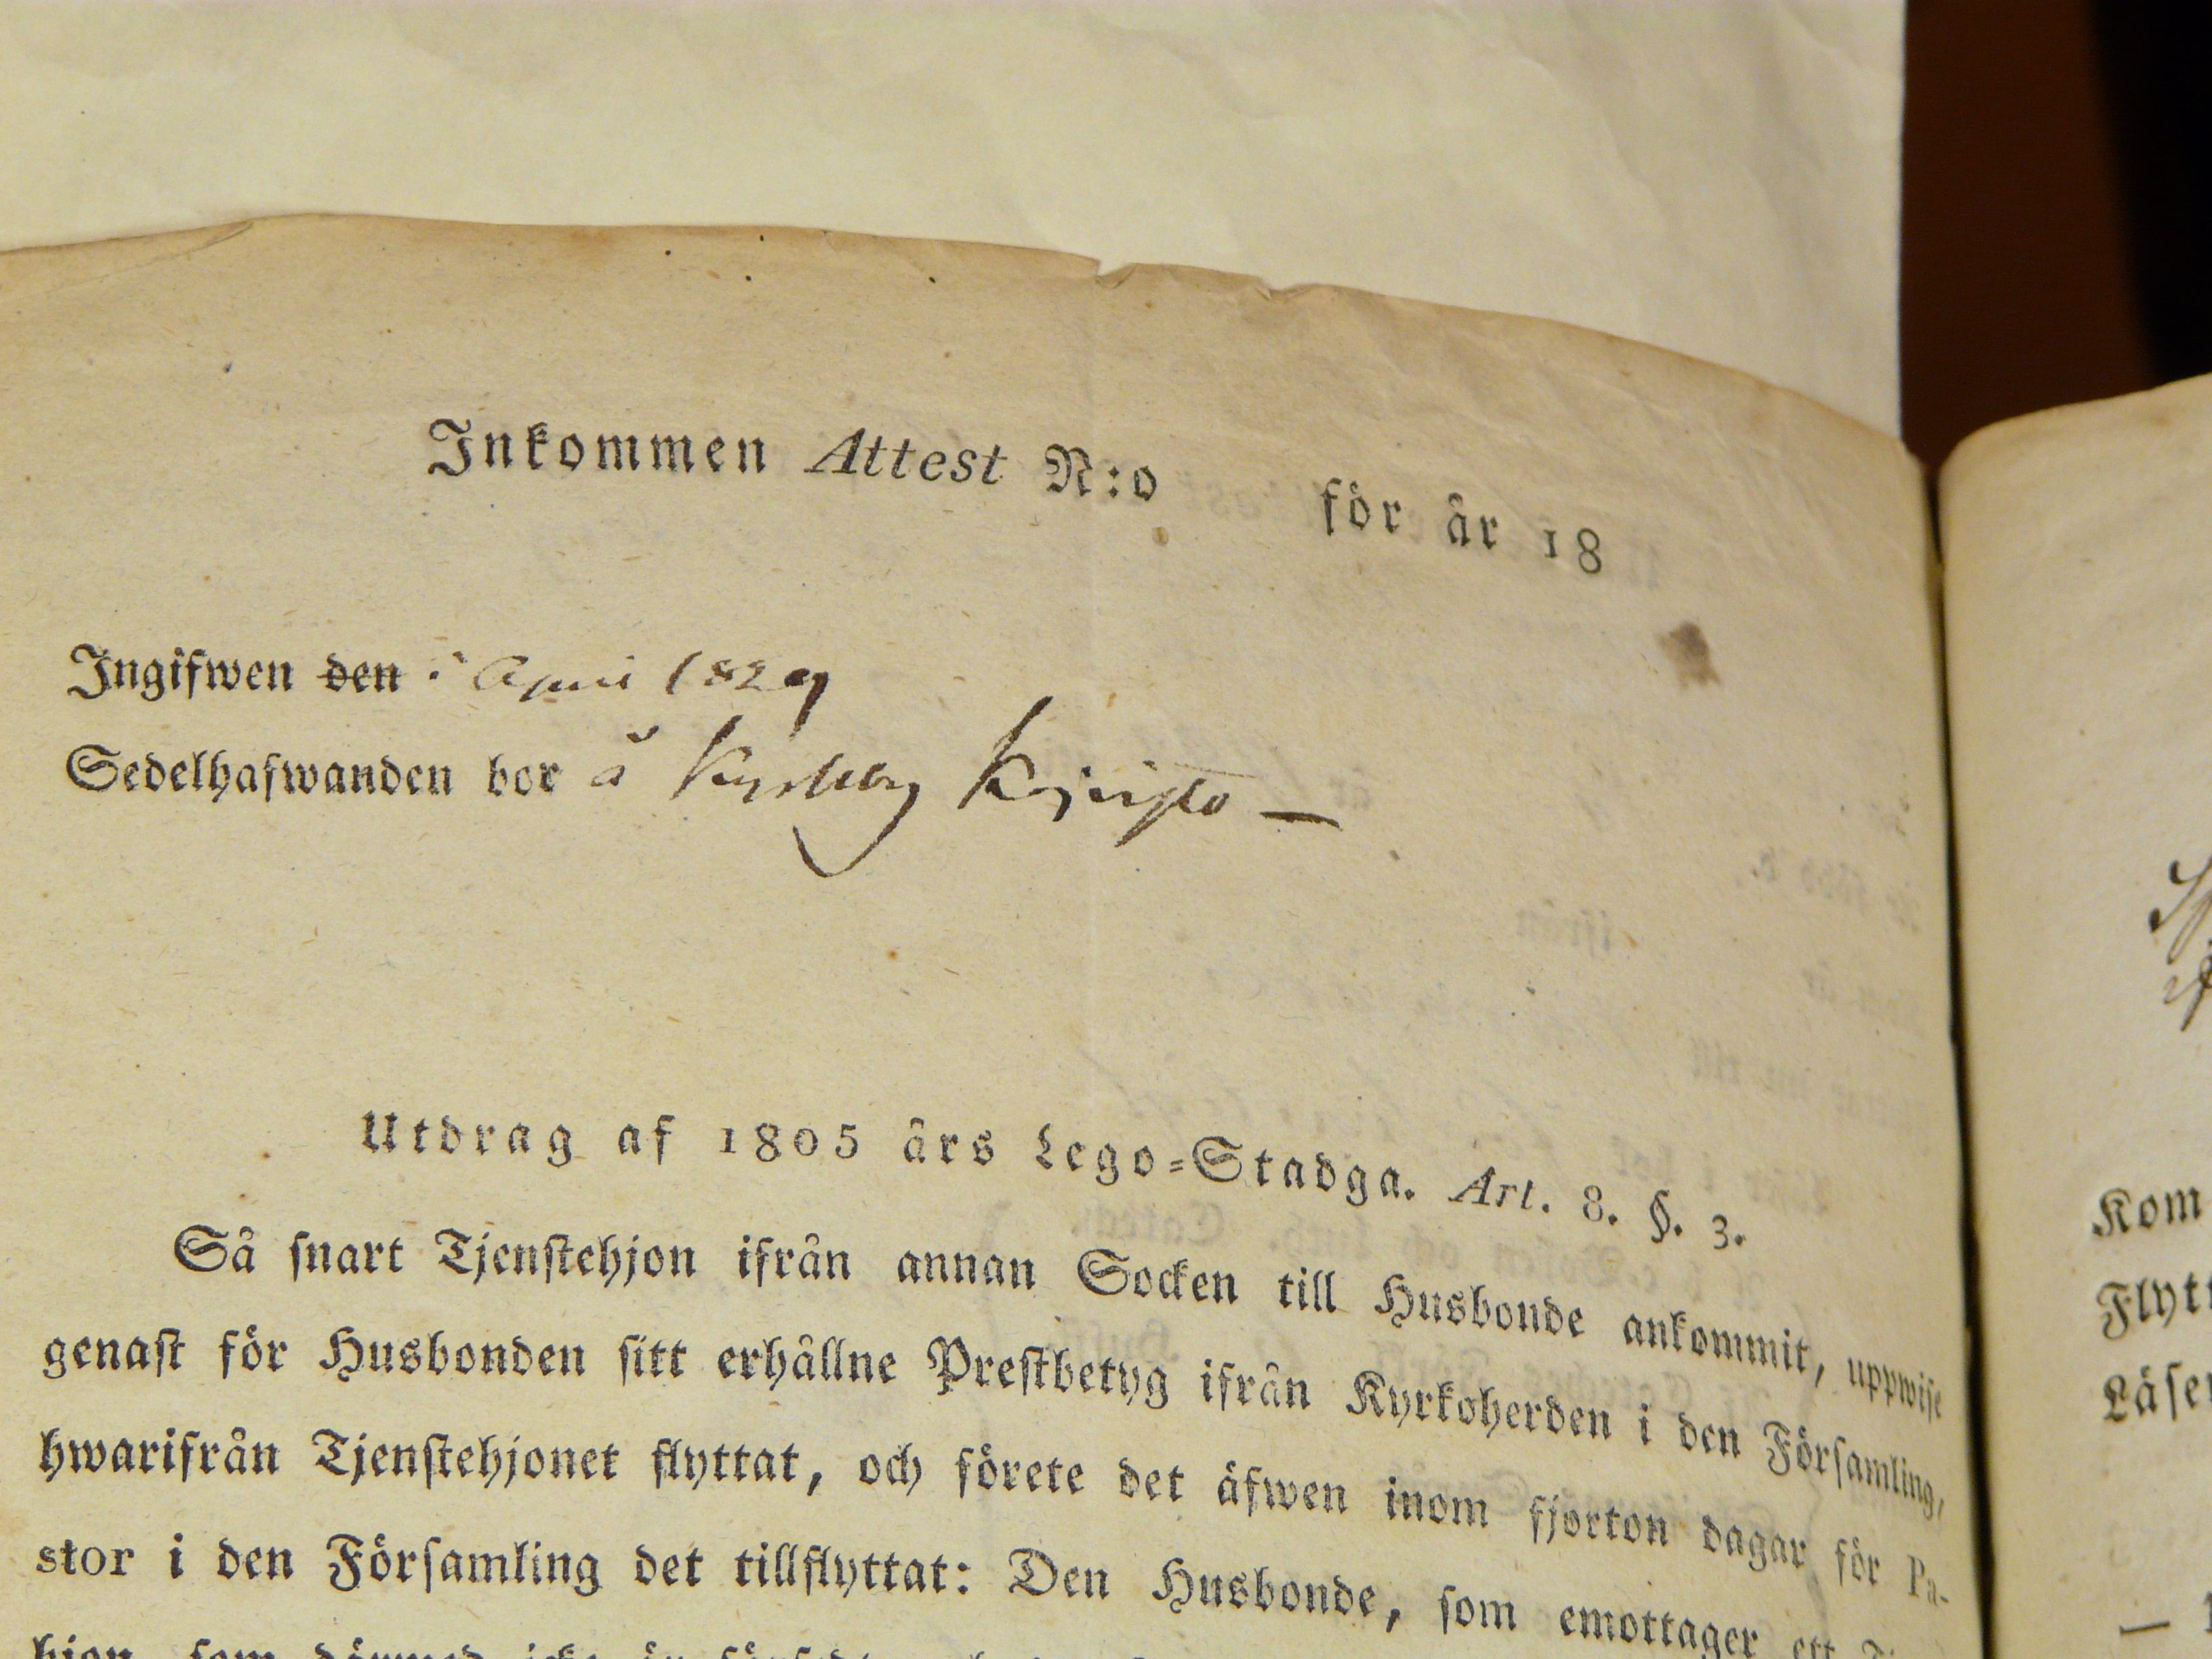 Inkommen Attest N:o för år 18
Ingifwen den i April 1829
Sedelhafwanden bor å
Utdrag af 1805 års Lego-Stadga. Art. 8. §. 3.
Så snart Tjenstehjon ifrån annan Socken till Husbonde ankommit, uppwise
genast för Husbonden sitt erhållne Prestbetyg ifrån Kyrkoherden i den Församling,
hwarifrån Tjenstehjonet flyttat, och förete det äfwen inom fjorton dagar för Pa-
stor i den Församling det tillflyttat: Den Husbonde, som emottager ett
Kom
Flytt
Läser